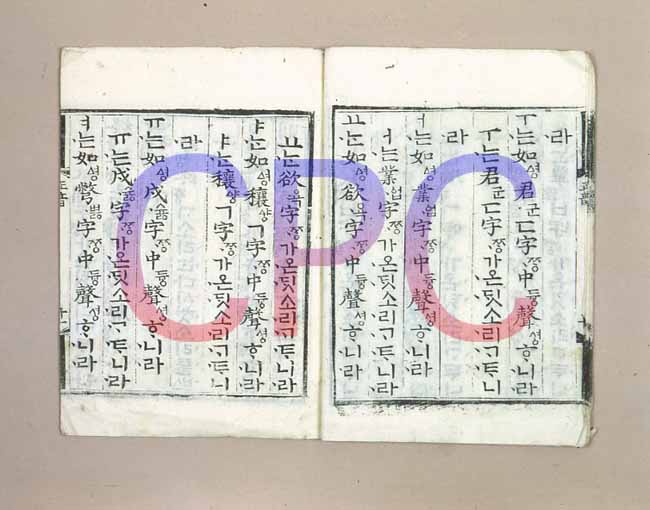 라
ㅜ는如ᅀᅧᆼ君군ㄷ字ᄍᆞᆼ中듀ᇰ聲셩ᄒᆞ니라
ㅜ는君군ㄷ字ᄍᆞᆼ가온ᄃᆡᆺ소리ᄀᆞᄐᆞ니
라
ㅓ는如ᅀᅧᆼ業업字ᄍᆞᆼ中듀ᇰ聲셩ᄒᆞ니라
ㅓ는業업字ᄍᆞᆼ가온ᄃᆡᆺ소리ᄀᆞᄐᆞ니라
ㅛᄂᆞᆫ如ᅀᅧᆼ欲욕字ᄍᆞᆼ中듀ᇰ聲셩ᄒᆞ니라
ㅛᄂᆞᆫ欲욕字ᄍᆞᆼ가온ᄃᆡᆺ소리ᄀᆞᄐᆞ니라
ㅑᄂᆞᆫ如ᅀᅧᆼ穰ᅀᅣᇰㄱ字ᄍᆞᆼ中듀ᇰ聲셩ᄒᆞ니라
ㅑᄂᆞᆫ穰ᅀᅣᇰㄱ字ᄍᆞᆼ가온ᄃᆡᆺ소리ᄀᆞᄐᆞ니
라
ㅠ는如ᅀᅧᆼ戌슗字ᄍᆞᆼ中듀ᇰ聲셩ᄒᆞ니라
ㅠ는戌슗字ᄍᆞᆼ가온ᄃᆡᆺ소리ᄀᆞᄐᆞ니라
ㅕ는如ᅀᅧᆼ彆볋字ᄍᆞᆼ中듀ᇰ聲셩ᄒᆞ니라
正音
CPC